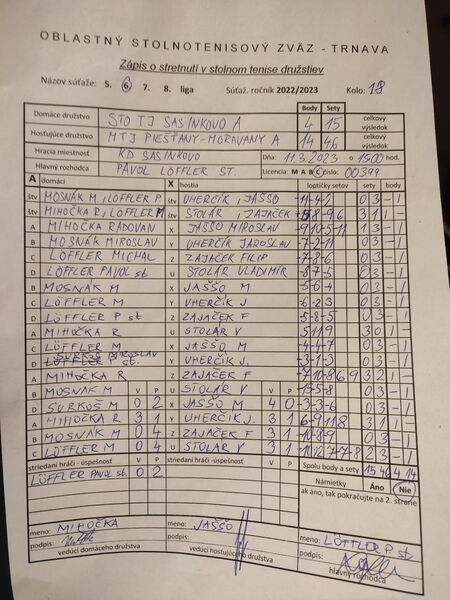 OBLASTNÝ STOLNOTENISOVÝ ZVÄZ - TRNAVA
Zápis o stretnutí v stolnom tenise družstiev
Názov súťaže: 5. 6 7. 8. liga Súťaž. ročník 2022/2023 Kolo: 18
Body Sety
Domáce družstvo STO TJ SASINKOVO A 4 15 celkový výsledok
Hosťujúce družstvo MTJ PIEŠŤANY-MORAVANY A 14 46 celkový výsledok
Hracia miestnosť KD SASINKOVO Dňa: 11.3.2023 o 1500 hod.
Hlavný rozhodca PAVOL LÖFFLER ST. Licencia: M A B C číslo: 00399
A domáci X hostia loptičky setov sety body
štv MOSNÁK M, LÖFFLER P štv UHERČÍK, JAŠŠO 0 3 - 1
štv MIHOČKA R, LÖFFLER M štv STOLÁR, ZAJAČEK 3 1 1 -
A MIHOČKA RADOVAN X JAŠŠO MIROSLAV 1 3 - 1
B MOSNÁK MIROSLAV Y UHERČÍK JAROSLAV -7-2-11 0 3 - 1
C LÖFFLER MICHAL Z ZAJAČEK FILIP -7-8-6 0 3 - 1
D LÖFFLER PAVOL st U STOLÁR VLADIMÍR -8-7-5 0 3 - 1
B MOSNÁK M X JAŠŠO M -5-6-4 0 3 - 1
C LÖFFLER M Y UHERČÍK J -6-2-3 0 3 - 1
D LÖFFLER P st Z ZAJAČEK F -5-8-5 0 3 - 1
A MIHOČKA R U STOLÁR V 5 11 9 3 0 1
C LÖFFLER M X JAŠŠO M -4-4-7 0 3 - 1
D SURKOŠ MIROSLAV Y UHERČÍK J. -3-1-3 0 3 - 1
A MIHOČKA R Z ZAJAČEK F 3 2 1 -
B MOSNÁK M V P U STOLÁR V V P 0 3 - 1
D SURKOŠ M 0 2 X JAŠŠO M 4 0 -3-3-6 0 3 - 1
A MIHOČKA R 3 1 Y UHERČÍK J. 3 1 3 1 1
B MOSNÁK M 0 4 Z ZAJAČEK F 3 1 -10-8-9 0 3 - 1
C LÖFFLER M 0 4 U STOLÁR V 3 1 2 3 - 1
striedaní hráči - úspešnosť V P striedaní hráči - úspešnosť V P Spolu body a sety 15 46 4 14
LÖFFLER PAVOL st. 0 2 Námietky Áno Nie
ak áno, tak pokračujte na 2. strane
meno: MIHOČKA meno: JAŠŠO meno: LÖFFLER P st
podpis: podpis: podpis:
vedúci domáceho družstva vedúci hosťujúceho družstva hlavný rozhodca